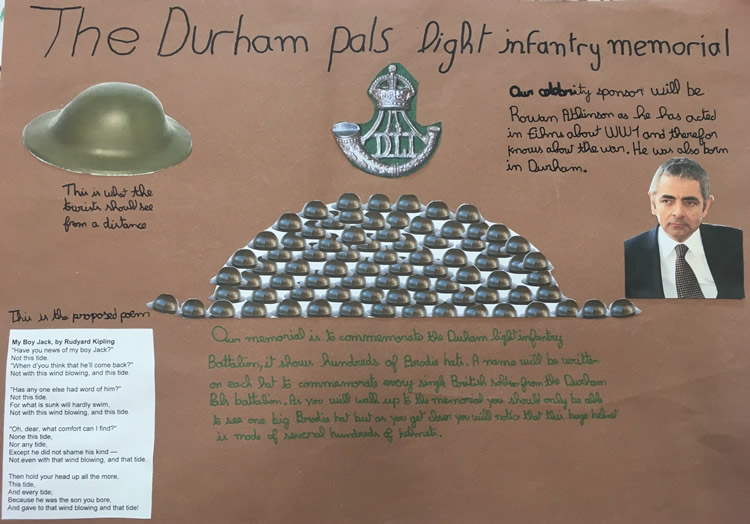 The Durham pals light infantry memorial
DLI
Our celebrity sponsor will be
Rowan Atkinson as he has acted
in films about WW1 and therefor
knows about the war. He was also born
in Durham.
This is what the
tourists should see
from a distance
This is the proposed poem
My Boy Jack, by Rudyard Kipling
"Have you news of my boy Jack?"
Not this tide.
"When d'you think that he'll come back?"
Not with this wind blowing, and this tide.
"Has any one else had word of him?"
Not this tide.
For what is sunk will hardly swim,
Not with this wind blowing, and this tide.
"Oh, dear, what comfort can I find?"
None this tide,
Nor any tide,
Except he did not shame his kind —
Not even with that wind blowing, and that tide.
Then hold your head up all the more,
This tide,
And every tide;
Because he was the son you bore,
And gave to that wind blowing and that tide!
Our memorial is to commemorate the Durham light infantry
Battalion, it shows hundreds of Brodie hats. A name will be written
on each hat to commemorate every single British soldier from the Durham
Pals battalion. As you will walk up to the memorial you should only be able
to see one big Brodie hat but as you get closer you will notice that this huge helmet
is made of several hundreds of helmets.